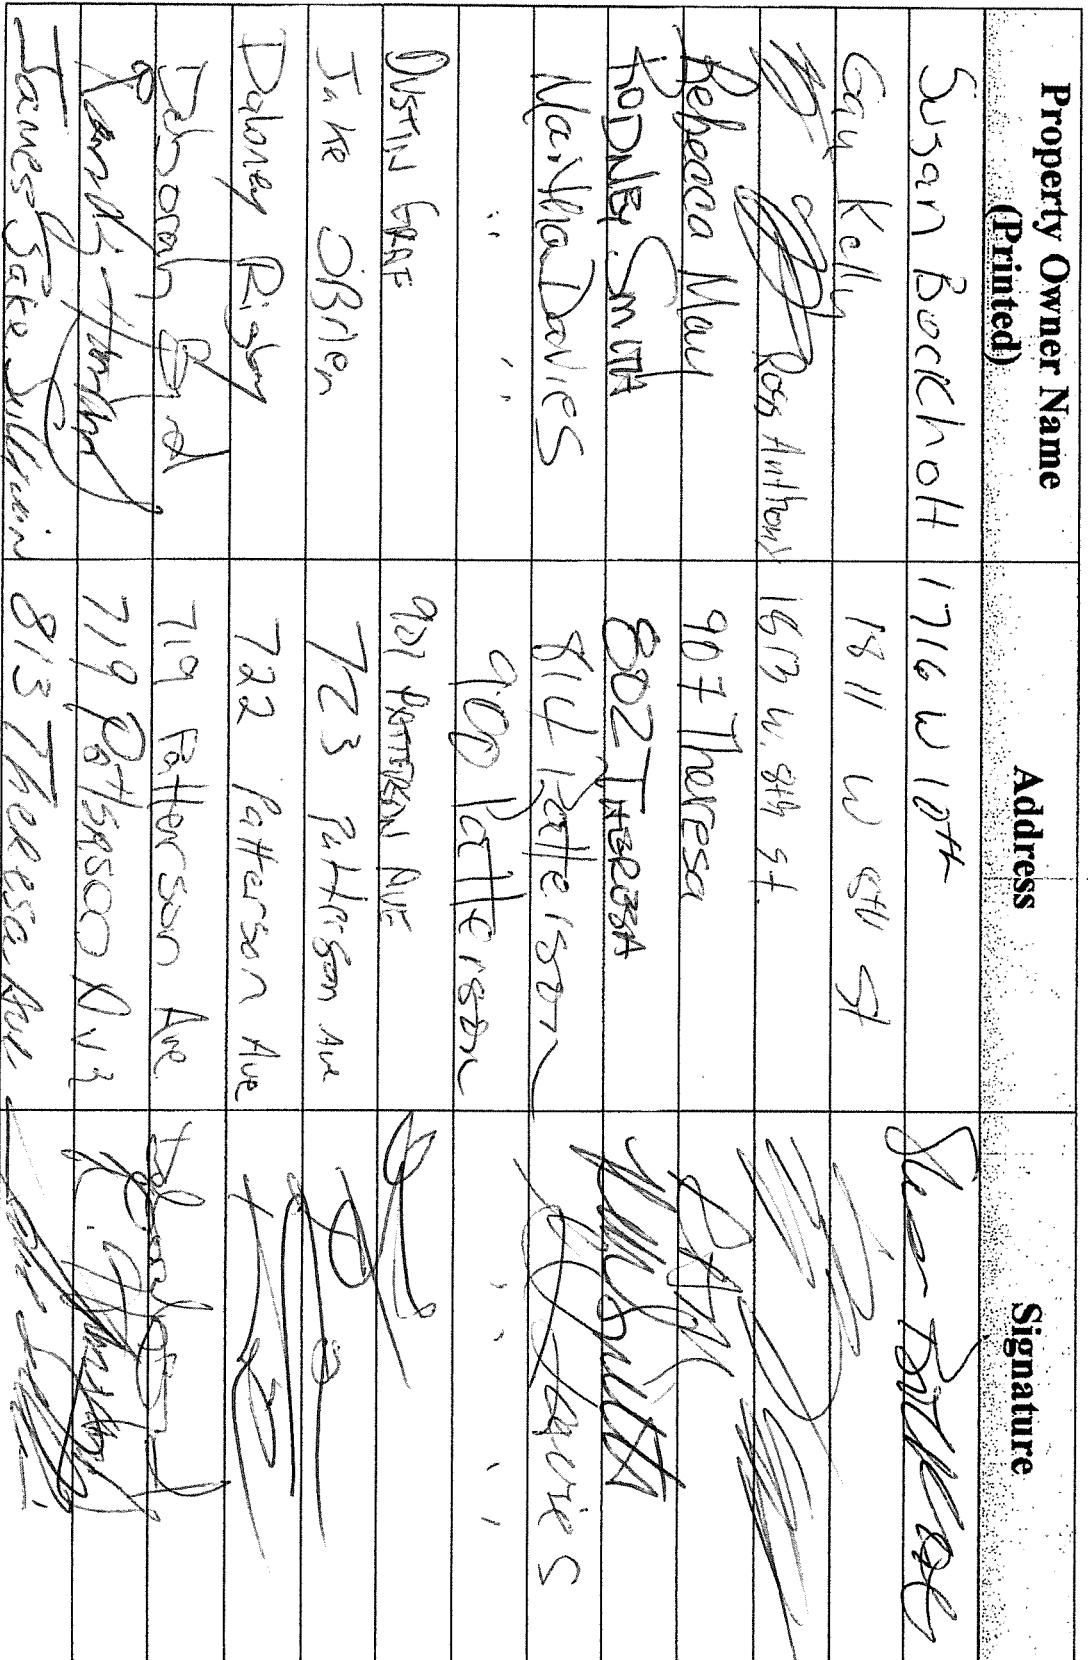 Property Owner Name (Printed) Address Signature
Susan Bockholt 1716 W 10th
Gay Kelly 1811 W 8th St
Ross Anthony 1613 W. 8th St.
Rebecca May 907 Theresa
RODNEY SMITH 802 THERESA
Martha Davies 814 Patterson Davies
" " 900 Patterson " "
DUSTIN GRAF 921 PATTERSON AVE
Jake OBrien 723 Patterson Ave
Daloney Rigby 722 Patterson Ave
Deborah Byrd 719 Patterson Ave
Randy 719 Ave
James Jake Sullivan 813 Theresa Ave.